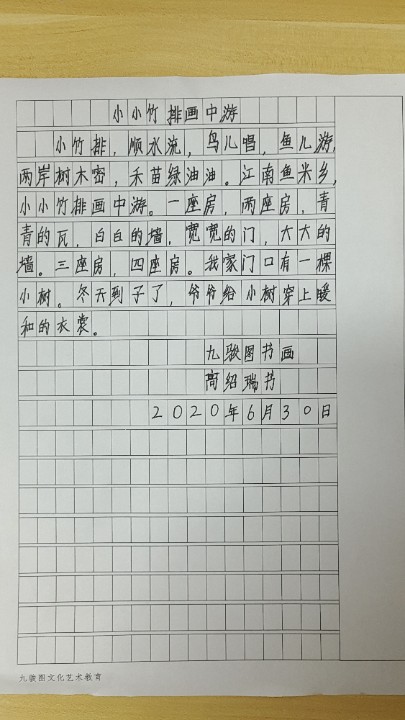 小小竹排画中游
小竹排，顺水流，鸟儿唱，鱼儿游，
两岸树木密，禾苗绿油油。江南鱼米乡，
小小竹排画中游。一座房，两座房，青
青的瓦，白白的墙，宽宽的门，大大的
墙。三座房，四座房。我家门口有一棵
小树。冬天到子了，爷爷给小树穿上暖
和的衣裳。
九骏图书画
高绍瑞书
2020年6月30日
九骏图文化艺术教育